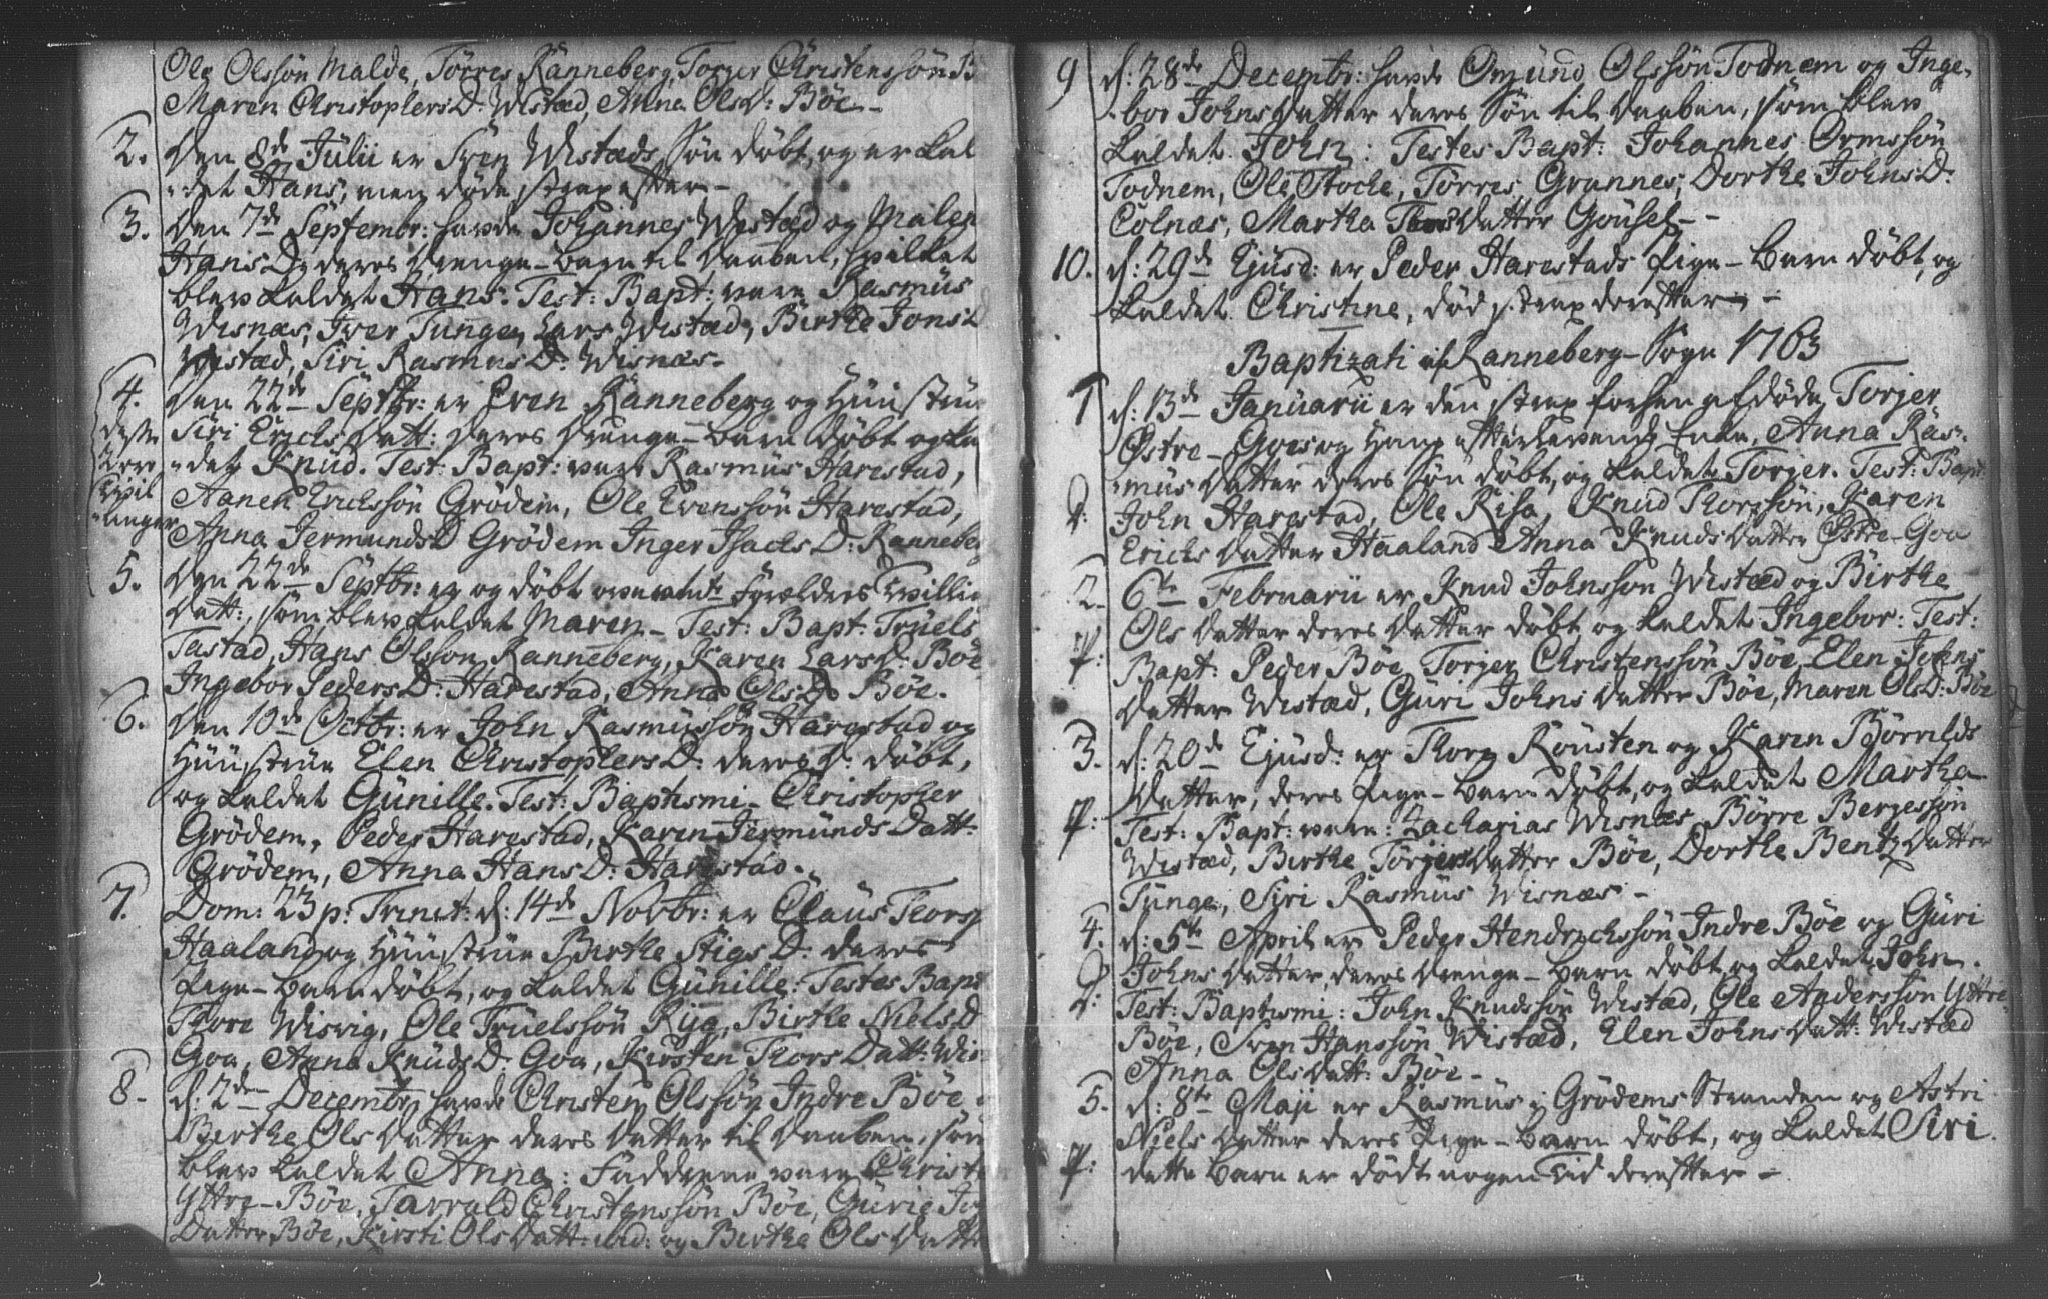 Ole Olssøn Malde, Tørres Ranneberg, Torger Christenssøn B
Maren ChristophersD: Wistæd, Anna OlsD: Bøe-
2. Den 8de Julii er Sven Wistæds Søn døbt, og er kal
det Hans; men døde strax efter-
3. Den 7de Septembr: havde Johannes Wistæd og Malene
HansD, deres Drenge-barn til Daaben, hvilket
blev kaldet Hans. Test: Bapt: vare Rasmus
Wisnæs, Iver Tunge, Lars Wistæd, Birthe JonsD
Wistæd, Siri RasmusD: Wisnæs.
4. Den 22de Septbr: er Even Ranneberg og Huustrue
Siri Erichs Datt: deres Drenge-barn døbt og kal
det Knud. Test: Bapt: vare Rasmus Harestad,
Aanen Erichssøn Grødem, Ole Evenssøn Harestad,
Anna JermundsD Grødem Inger IsachsD: Ranneberg
disse
2 ere
Tvil
linger
5. Den 22de Septbr: er og døbt Forældres Tvilling
Datt:, som blev kaldet Maren- Test: Bapt: Truels
Tastad, Hans Olsson Ranneberg, Karen LarsD: Bøe
Ingebor PedersD: Harestad, Anna OlsD Bøe.
6. Den 10de Octbr: er John Rasmussøn Harestad og
Huustrue Elen ChristophersD: deres D: døbt,
og kaldet Gunille. Test: Baptismi- Christopher
Grødem, Peder Harestad, Karen Jermunds Datt:
Grødem, Anna HansD: Harestad.
7. Dom: 23 p: Trinit: d: 14de Novbr: er Claus Thorss
Haaland og Huustrue Birthe StigsD: deres
Pige-barn døbt, og kaldet Gunille: Testes Bapt
Thore Wisvig, Ole Truelssøn Ryg, Birthe NielsD
Goa, Anna KnudsD: Goa, Kirsten Thors Datt: Wis
8- d: 2den Decembr, havde Christen Olssøn Indre Bøe
Berthe Ols Datter deres Datter til Daaben, som
blev kaldet Anna: Fadderne vare Christ
Yttre-Bøe, Tarrald Christenssøn Bøe, Gurie Jo
Datter Bøe, Kirsti Ols Datt: ibid: og Birthe Ols Datte
9 d: 28de Decembr: havde Omund Olssøn Todnem og Inge-
bor Johns Datter deres Søn til Daaben, som blev
kaldet John: Testes Bapt: Johannes Ormssøn
Todnem, Ole Stocke, Tørres Grannes, Dorthe JohnsD:
Colnæs, Martha Datter Gousel--
10. d: 29de Ejusd: er Peder Harestads Pige-barn døbt, og
kaldet Christine, død strax derefter--
Baptizati af Ranneberg-Sogn 1763
1 d: 13de Januarii er den strax forhen afdøde Torjer
Østre-Goes og Hans efterlevende Enke, Anna Ras-
mus Datter deres Søn døbt, og kaldet Torjer. Test: Bapt
John Harestad, Ole Risa, Knud Thorssøn, Karen
Erichs Datter Haaland Anna Knuds Datter Østre-Goa
2. 6te Februarii er Knud Johnsson Wistæd og Birthe
Ols Datter deres Datter døbt og kaldet Ingebor: Test:
P: Bapt: Peder Bøe, Torjer Christenssøn Bøe, Elen Johns
Datter Wistæd, Guri Johns Datter Bøe, Maren OlsD: Bøe
3. d: 20de Ejusd: er Thore Rousten og Karen Børrilds
Datter, deres Pige-barn døbt, og kaldet Martha
P: Test: Bapt: vare: Zacharias Wisnæs, Børre Bergessøn
Wistæd, Birthe Torjers Datter Bøe, Dorthe Bentz Datter
Tunge, Siri Rasmus Wisnæs-
4. d: 5te April er Peder Hendrichssøn Indre Bøe og Guri
Johns Datter, deres Drenge-barn døbt, og kaldet John.
Test: Baptismi: John Knudssøn Wistæd, Ole Anderssøn Yttre-
Bøe, Sven Hanssøn Wistæd, Elen Johns Datt: Wistæd
Anna Ols Datt: Bøe-
5. d: 8te Maji er Rasmus i Grødems Stranden og Astri
Niels Datter deres Pige-barn døbt, og kaldet Siri.
P: dette barn er dødt nogen Tid derefter-